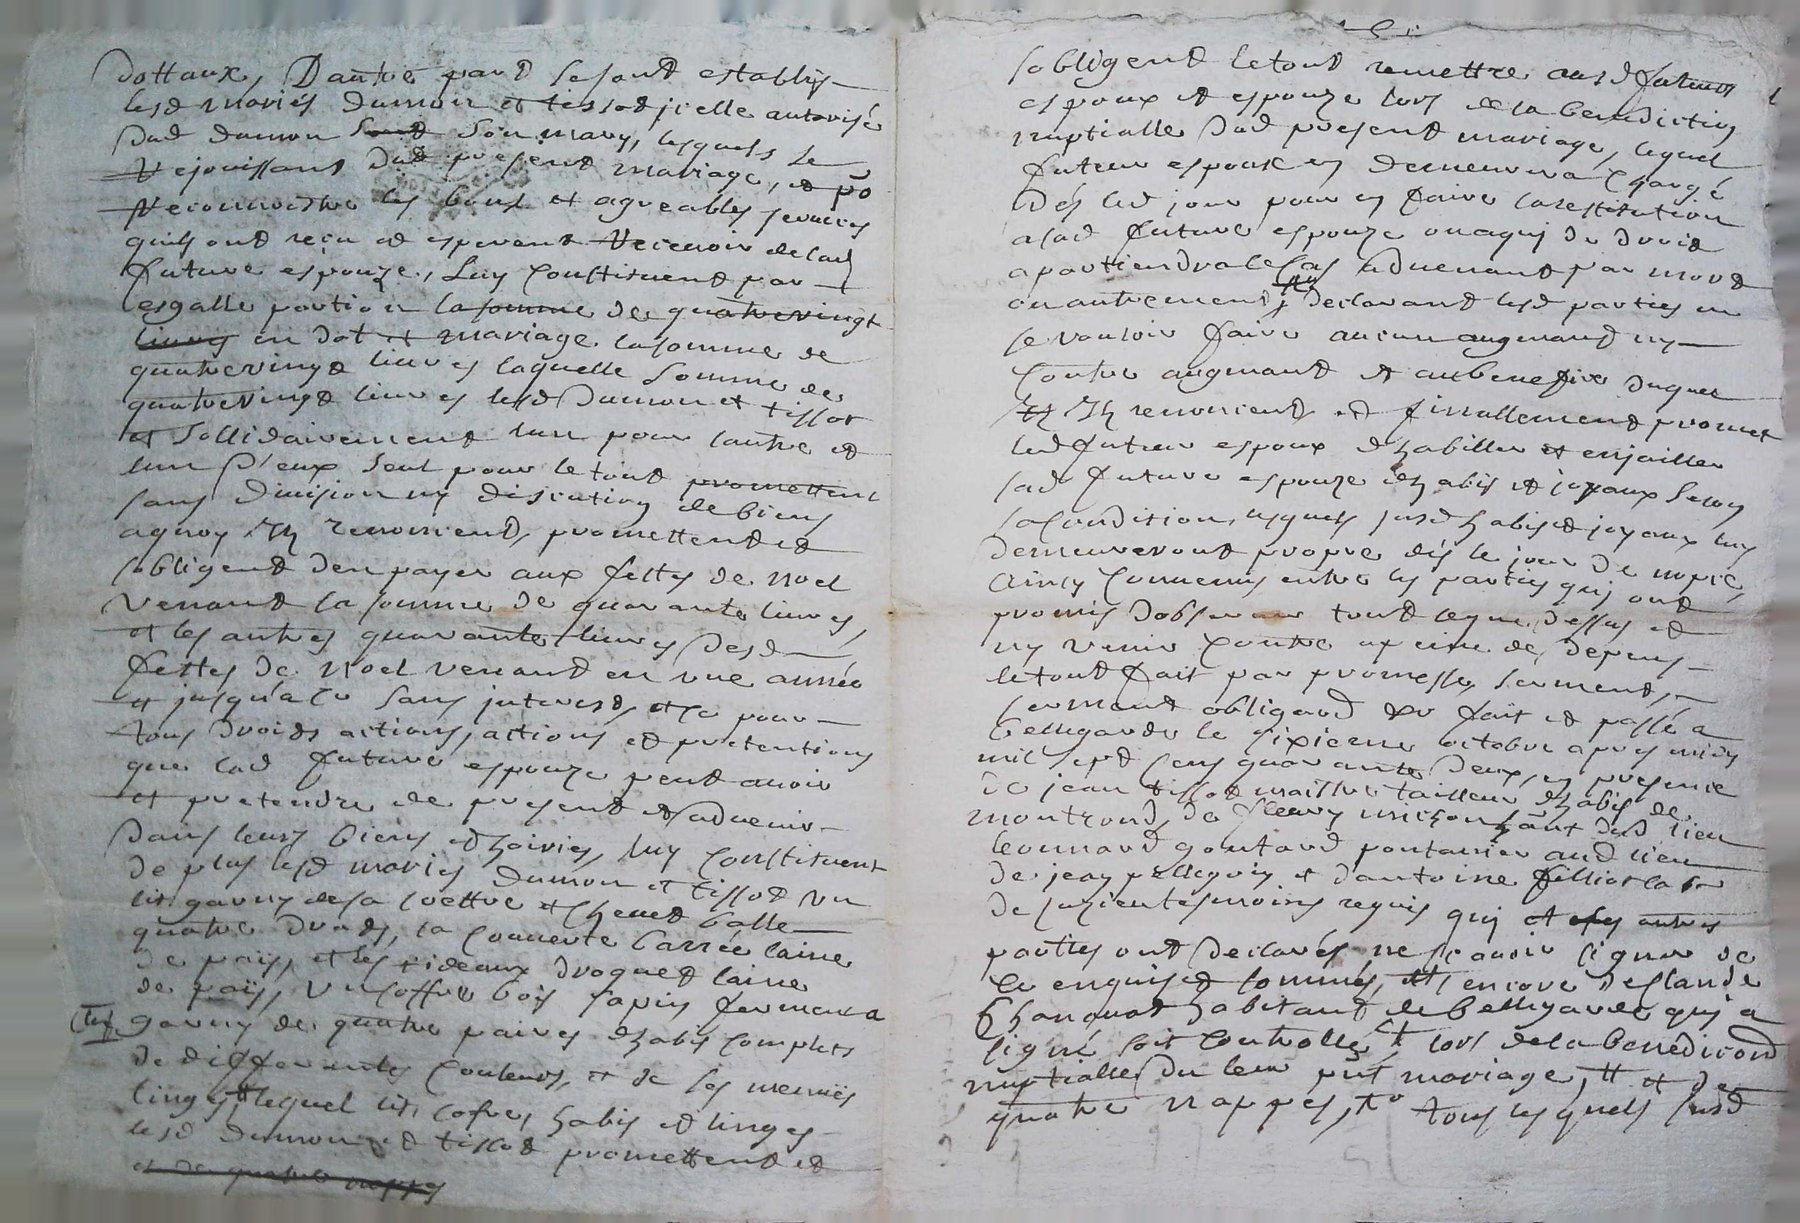 dottaux, Dautre part se sont establis
lesd mariés dumon et tissot jcelle autorisée
dud dumon sond son mary, lesquels se
rejouissant dud present mariage, et po
reconnoistre les bons et agreables services
quils ont reçu et esperent recevoir de lad
future espouze, Luy constituent par
esgalle portion la somme de quatrevingt
livres en dot et mariage la somme de
quatrevingt livres laquelle somme de
quatrevingt livres lesd Dumon et tissot
et sollidairement lun pour lautre et
lun d'eux seul pour le tout promettent
sans division ny discution de biens
aquoy ils renoncent, promettent et
sobligent den payer aux festes de noel
venant la somme de quarante livres,
et les autres quarante livres desd
festes de noel venant en une année
et jusqu'a ce sans jnterest, et ce pour
tous droits actions, actions et pretentions
que lad future espouze peut avoir
et pretendre de present et advenir
dans leurs biens et hoiries, luy constituent
de plus lesd mariés dumon et tissot un
lit garny de sa coettre et chevet balle
quatre draps, la couverte barrée laine
de païs, et les rideaux droguet laine
de païs, un coffre bois sapin fermant a
clef garny de quatre paires dhabis complets
de differentes couleurs, et de ses menues
linges # lequel lit, cofre, habis et linges
lesd dumon et tissot promettent et
et de quatre nappes
sobligent le tout remettre ausd futeurs
espoux et espouze lors de la benediction
nuptialle dud present mariage, lequel
futeur espoux en demeurera chargé
dés led jour pour en faire la restitution
a lad future espouze ou a qui de droit
apartiendra le cas advenant par mort
ou autrement, declarant lesd parties ne
se vouloir faire aucun augmant ny
contre augmant et au benefice duquel
ils renoncent et finallement promet
led futeur espoux dhabiller et enjoailler
lad future espouze dhabis et joyaux selon
sa condition, lesquels susd habis et joyaux luy
demeureront propre dés le jour de nopces,
ainsy convenu entre les parties qui ont
promis dobserver tout ce que dessus et
ny venir contre a peine de depens
le tout fait par promesse, serment,
sermant obligaod xr fait et passé a
bellegarde le sixieme octobre apres midy
mil sept cens quarante deux, en presence
de jean tissot maistre tailleur dhabis de
montrond, de fleury michon hant dud lieu
leonnard goutard pontanier aud lieu
de jean pellegrin et dantoine filliot labr
de suzieu tesmoins requis qui et les autres
parties ont declarés ne scavoir signer de
ce enquis et sommés, et encore deslande
habitant de bellegarde qui a
signé soit controllé # lors de la benedicond
nuptialle du leur pnt mariage, # et de
quatre nappes, xr tous lesquels susd